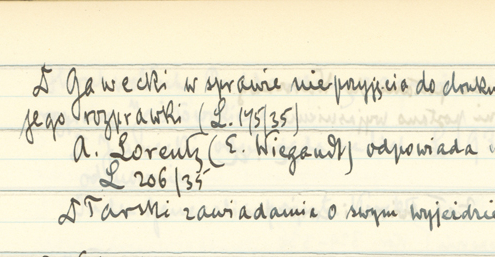 D Gawecki w sprawie nieprzyjęcia do druku
jego rozprawki (L. 175/35)
A. Lorentz (E. Wiegandt) odpowiada
L 206/35
D Tarski zawiadamia o swym wyjeździe